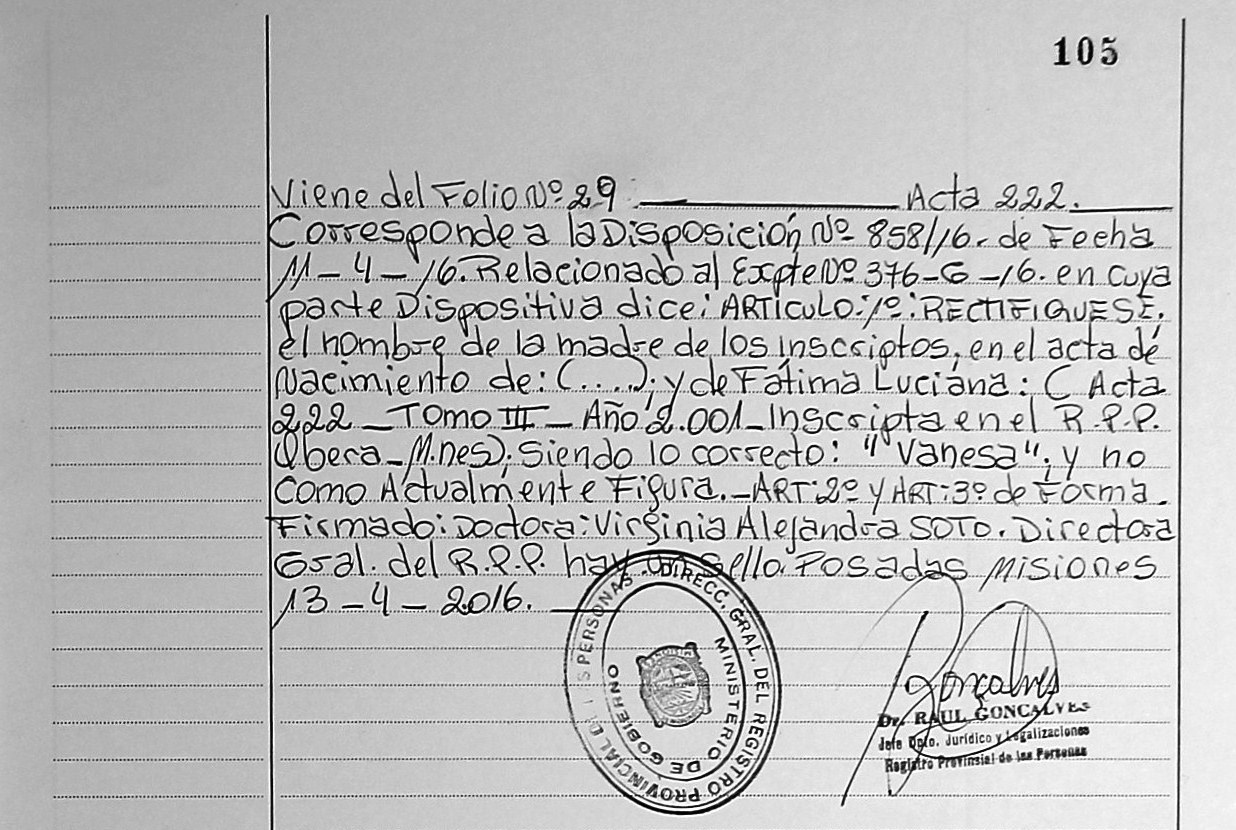 105
Viene del Folio Nº 29 Acta 222.
Corresponde a la Disposición Nº 858/16. de Fecha
11-4-16. Relacionado al Expte Nº 376-G-16. en cuya
parte Dispositiva dice: ARTÍCULO: 1º: RECTIFIQUESE.
el nombre de la madre de los inscriptos, en el acta de
Nacimiento de: (....); y de Fátima Luciana: (Acta
222 - Tomo III - Año 2.001 - Inscripta en el R.P.P.
Obera - M.nes); Siendo lo correcto: "Vanesa"; y no
como Actualmente Figura. - ART: 2º y ART: 3º de Forma.
Firmado: Doctora: Virginia Alejandra SOTO. Directora
Gral. del R.P.P. hay un sello. Posadas Misiones
13-4-2016.
DIRECC. GRAL. DEL REGISTRO PROVINCIAL DE LAS PERSONAS
MINISTERIO DE GOBIERNO
Gonçalves
Dr. RAUL GONCALVES
Jefe Dpto. Jurídico y Legalizaciones
Registro Provinsial de las Personas